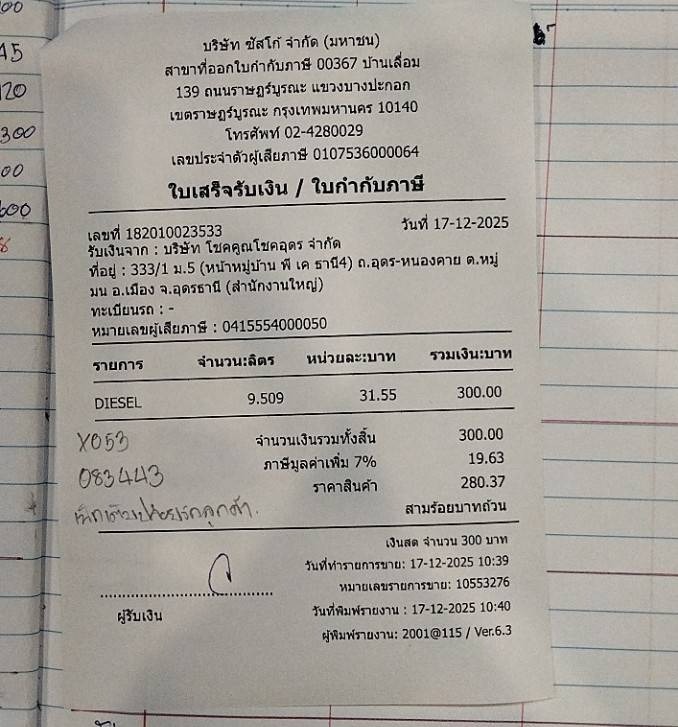 00
45
120
300
00
600
8
บริษัท ซัสโก้ จำกัด (มหาชน)
สาขาที่ออกใบกำกับภาษี 00367 บ้านเลื่อม
139 ถนนราษฎร์บูรณะ แขวงบางปะกอก
เขตราษฎร์บูรณะ กรุงเทพมหานคร 10140
โทรศัพท์ 02-4280029
เลขประจำตัวผู้เสียภาษี 0107536000064
ใบเสร็จรับเงิน / ใบกำกับภาษี
เลขที่ 182010023533 วันที่ 17-12-2025
รับเงินจาก : บริษัท โชคคูณโชคอุดร จำกัด
ที่อยู่ : 333/1 ม.5 (หน้าหมู่บ้าน พี เค ธานี4) ถ.อุดร-หนองคาย ต.หมู่
มน อ.เมือง จ.อุดรธานี (สำนักงานใหญ่)
ทะเบียนรถ : -
หมายเลขผู้เสียภาษี : 0415554000050
รายการ จำนวน:ลิตร หน่วยละ:บาท รวมเงิน:บาท
DIESEL 9.509 31.55 300.00
จำนวนเงินรวมทั้งสิ้น 300.00
ภาษีมูลค่าเพิ่ม 7% 19.63
ราคาสินค้า 280.37
สามร้อยบาทถ้วน
X053
083443
เงินสด จำนวน 300 บาท
วันที่ทำรายการขาย: 17-12-2025 10:39
หมายเลขรายการขาย: 10553276
วันที่พิมพ์รายงาน : 17-12-2025 10:40
ผู้พิมพ์รายงาน: 2001@115 / Ver.6.3
ผู้รับเงิน